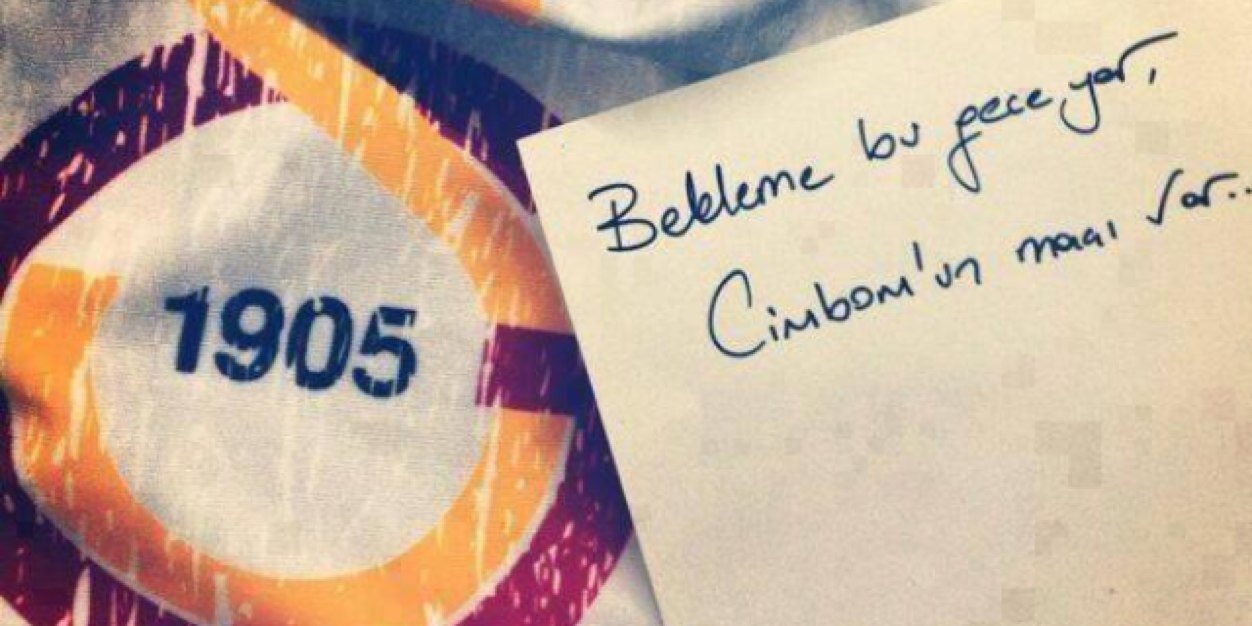 1905
Bekleme bu gece yar,
Cimbom'un maaı var..